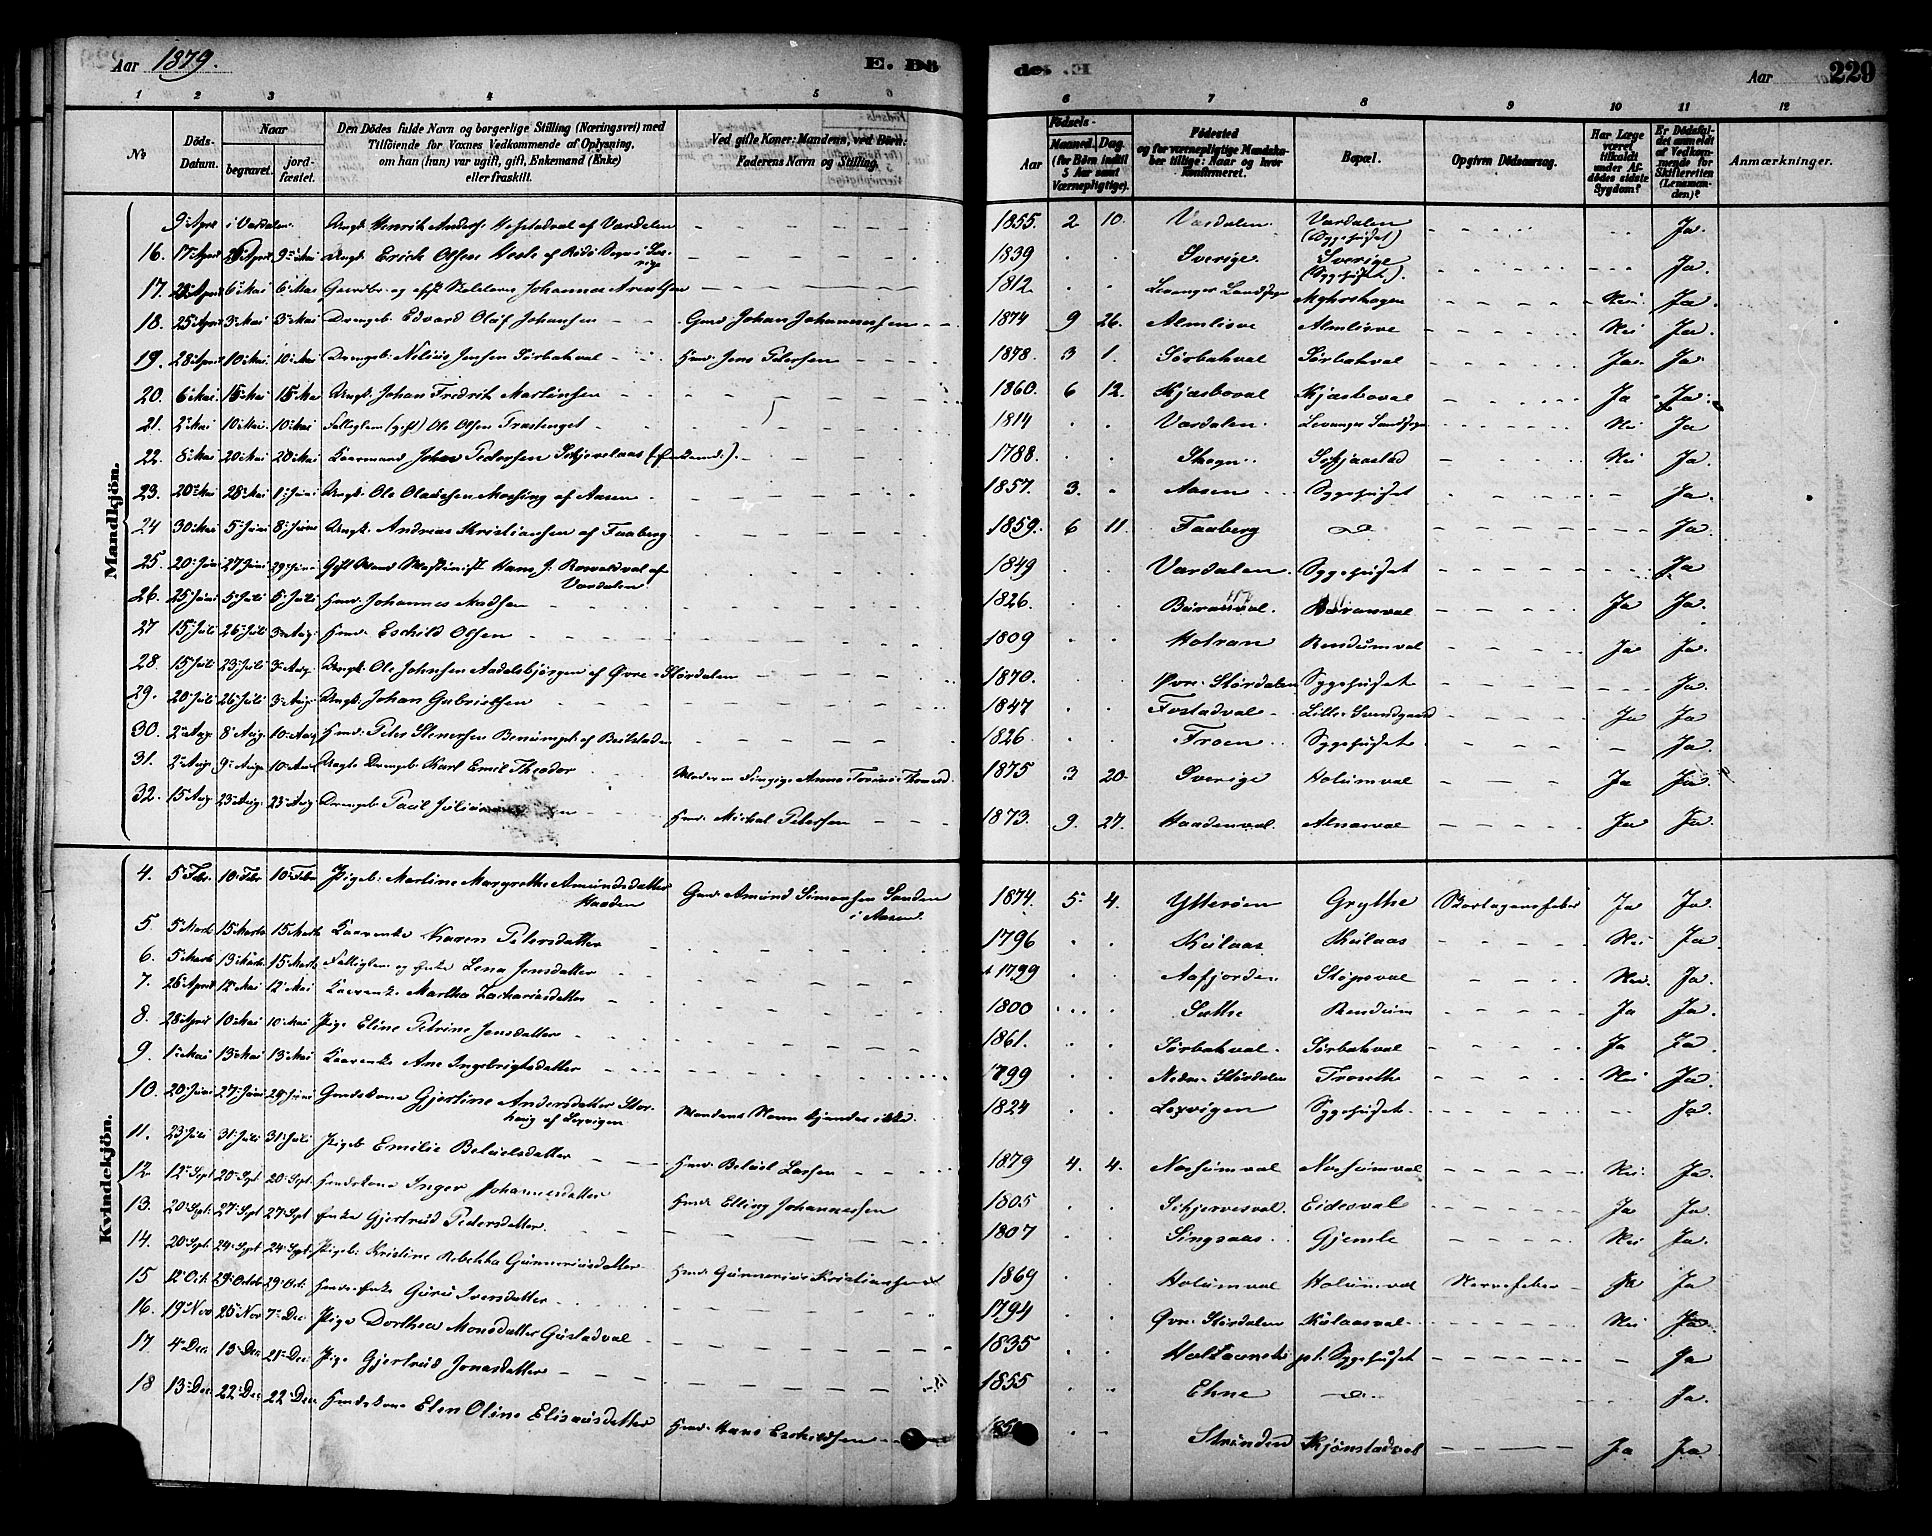 Aar 1879. E. Dö
de: E Aar 229
1 2 3 4 5 6 7 8 9 10 11 12
No
Döds-Datum.
Naar
begravet.
jordfæstet.
Den Dödes fulde Navn og borgerlige Stilling (Næringsvei) med Tilföiende for Voxnes Vedkommende af Oplysning, om han (hun) var ugift, gift, Enkemand (Enke) eller fraskilt.
Ved gifte Koner: Mandens, ved Börn: Faderens Navn og Stilling.
Födsels-
Aar
Maaned. Dag.
(for Börn indtil 5 Aar samt Værnepligtige).
Födested og for værnepligtige Mandskaber tillige: Naar og hvor konfirmeret.
Bopæl.
Opgiven Dödsaarsag.
Har Læge været tilkaldt under Afdödes sidste Sygdom?
Er Dödsfaldet anmeldt af Vedkommende for Skifteretten (Lensmanden)?
Anmærkninger.
Mandkjön.
9 April i Værdalen. Ungk. Henrik Anders. af Værdalen 1855. 2 10. Værdalen Værdalen (Sygehuset) Ja.
16. 17 April 9 Mai Ungk. Erick Olsen 1839 Sverige. Sverige (Sygehuset). Ja.
17. 6 Mai 6 Mai Johannes Arentsen 1812 Levanger Landsogn Myhrshagen Nei Ja.
18. 25 April 3 Mai 3 Mai Drengeb. Edvard Olaf Johansen Gmd. Johan Johannessen 1874 9 26. Almlisve Almlisve Nei Ja.
19. 28 April 10 Mai 10 Mai Drengeb. Nelius Jensen Sörbakval Hmd. Jens Petersen 1878. 3 1. Sörbakval Sörbakval Ja. Ja.
20. 6 Mai 15 Mai 15 Mai Ungk. Johan Fredrik Martinsen 1860. 6 12. Ja Ja.
21. 2 Mai 10 Mai. 10 Mai Fattiglem (gift) Ole Olsen Trøstenget 1814 Værdalen. Levanger Landsogn Nei Ja
22. 8 Mai 20 Mai 20 Mai Kaarmand Johan Pedersen Schjevelaas (Enkemd.). 1788. Skogn. Schjaastad Nei Ja.
23. 20 Mai 28 Mai 1 Juni Ungk. Ole Olaussen Mossing af Aasen 1857. 3. Aasen Sygehuset Ja.
24 30 Mai 5 Juni 8 Juni Ungk. Andreas Kristiansen af Faaberg. 1859. 6 11. Faaberg Ja.
25. 20 Juni 27 Juni 29 Juni Gift Mand Maskinist Hans J. af Værdalen 1849 Værdalen Sygehuset Ja
26. 25 Juni 5 Juli 5 Juli Hmd. Johannes Madsen 1826. Ja Ja.
27 15 Juli 26 Juli 3 Aug. Hmd. Eschild Olsen 1809 Holran Rendumval Ja Ja.
28. 15 Juli 23 Juli 3 Aug. Ungk. Ole Johnsen Aadalsbjörgen af Øvre Stördalen 1870. Øvre Stördalen Sygehuset Ja.
29. 20 Juli 26 Juli 3 Aug. Ungk. Johan Gabrielsen 1847 Fostadval Lille Svendgaard Ja Ja.
30. 2 Aug. 8 Aug. 10 Aug Hmd. Peter Stenersen af Beitstaden 1826 Troen Sygehuset Ja.
31. 2 Aug. 9 Aug. 10 Aug Drengeb. Karl Emil Theodor Moderen Anne 1875 3 20. Sverige Holumval Ja Ja.
32. 15 Aug. 23 Aug. 23 Aug. Drengeb. Paul Hmd. Mikal Petersen 1873. 9. 27. Haadenval. Alnæsval Ja Ja.
Kvindekjön.
4. 5 Febr. 10 Febr 10 Febr Pigeb. Martine Margrethe Amundsdatter Haaden Gmd. Amund Simonsen Sanden i Aasen 1874. 5 4. Ytterøen Grythe Ja Ja.
5 5 Marts 15 Marts 15 Marts Kaarenke Karen Petersdatter 1796 Kulaas Kulaas Nei Ja
6. 5 Marts 13 Marts 15 Marts Fattiglem og Enke Lena Jensdatter 1799 Aafjorden Stöpsval Nei. Ja.
7. 26 April 12 Mai 12 Mai Kaarenke Martha Zachariasdatter 1800 Sæthe Rendum Ja Ja.
8. 28 April 10 Mai 10 Mai Pige Eline Petrine Jensdatter 1861. Sörbakval. Sörbakval Ja Ja
9. 1 Mai 13 Mai 13 Mai Kaarenke Ane Ingebrigtsdatter 1799 Nedre Stördalen Troseth Nei Ja.
10. 20 Juni 27 Juni 29 Juni Gaardskone Gjertine Andersdatter Storhaug af Lexvigen Mandens Navn kjendes ikke. 1824 Lexvigen Sygehuset Ja.
11. 23 Juli 31 Juli 31 Juli Pigeb. Emilie Beluelsdatter Hmd. Beluel Larsen 1879 4. 4. Nossumval Nossumval Nei Ja.
12 12 Sept 20 Sept 20 Sept. Hmdskone Inger Johannesdatter Hmd. Elling Johannessen 1805 Schjervesval Eidesval Ja Ja.
13. 20 Sept. 27 Sept 27 Sept Enke Gjertrud Pedersdatter 1807 Singsaas Gjemle Nei Ja.
14. 20 Sept. 24 Sept 24 Sept. Pigeb. Kristine Rebekka Gunneriusdatter Hmd. Gunnerius Kristiansen 1869 Holumval Holumval Nervefeber Ja Ja
15 12 Oct. 29 Octob 29 Oct. Enke Guru Iversdatter 1794 Øvre Stördalen Kulaasval Nei Ja.
16. 19 Nov 25 Nov 7 Dec Pige Dorthea Monsdatter Gustadval 1835 pt. Sygehuset Ja
17 4 Dec. 13 Dec. 21 Dec. Pige Gjertrud Jonasdatter 1855 Ekne Ja.
18 13 Dec. 22 Dec. 22 Dec. Hmdskone Elen Oline Elisæusdatter Hmd. Hans Eschildsen Strinden Kjönstadval Ja Ja